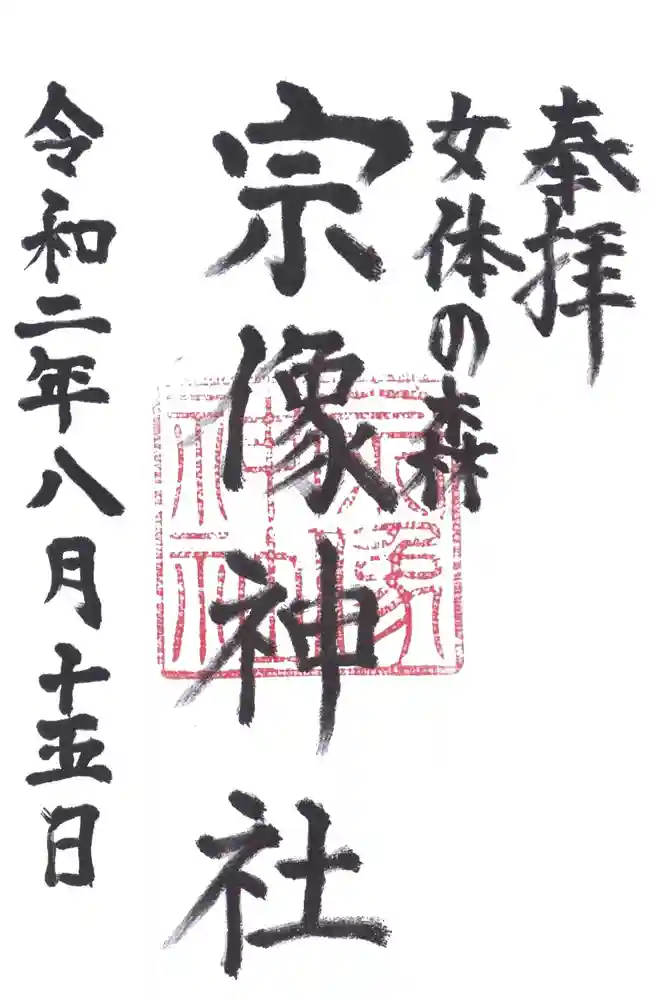 奉拝
女体の森
宗像神社
宗像神社
令和二年八月十五日